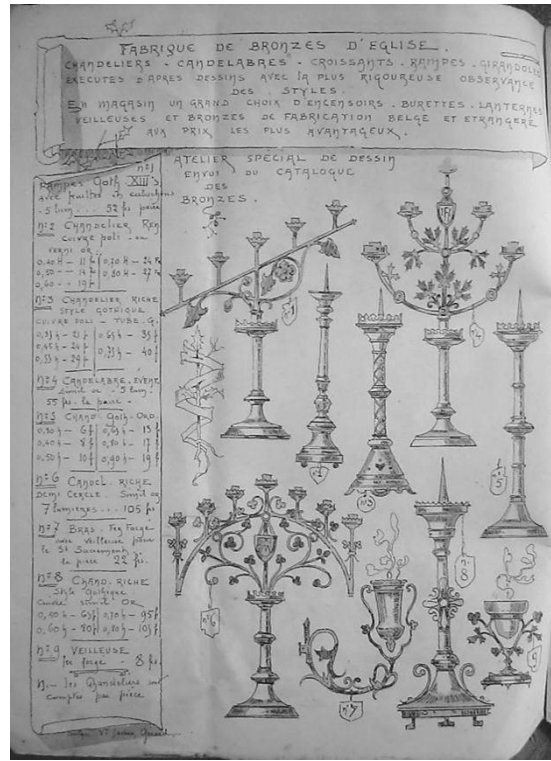 FABRIQUE DE BRONZES D'EGLISE.
CHANDELIERS - CANDELABRES - CROISSANTS - RAMPES - GIRANDOLES
EXECUTES D'APRES DESSINS AVEC LA PLUS RIGOUREUSE OBSERVANCE
DES STYLES.
EN MAGASIN UN GRAND CHOIX D'ENCENSOIRS - BURETTES - LANTERNES
VEILLEUSES ET BRONZES DE FABRICATION BELGE ET ETRANGERE
AUX PRIX LES PLUS AVANTAGEUX.
ATELIER SPECIAL DE DESSIN
ENVOI DU CATALOGUE
DES
BRONZES.
n°1
RAMPES Goth XIII°
avec feuilles
5 lum. . . . 52 frs
n°2 CHANDELIER REN
CUIVRE poli - ou
VERNI OR.
0,40 h - 11 f 0,70 h - 24 f
0,50 - 14 f 0,80 h - 27 f
0,60 - 19 f
n°3 CHANDELIER RICHE
STYLE GOTHIQUE
CUIVRE POLI - TUBE G.
0,65 h - 35 f
0,45 h - 24 f
0,75 h - 40 f
0,55 h - 29 f
n°4 CANDELABRE
simil or - 5 lum.
55 frs. la paire -
n°5 CHAND. Goth. ORD.
0,30 h - 6 f 0,65 h - 13 f
0,40 h - 8 f 0,80 h - 17 f
0,50 h - 10 f 0,90 h - 19 f
n°6 CANDEL. RICHE
DEMI CERCLE. Simil or
7 lumieres . . . 105 fs
n°7 BRAS. Fer Forgé
avec Veilleuse pour
le St Sacrement
la pièce 22 frs.
n°8 CHAND. RICHE
Style Gothique
simil OR
0,50 h - 65 f 0,70 h - 95 f
0,60 h - 80 f 0,80 h - 105 f
n°9 VEILLEUSE
fer forgé - 8 frs
les Chandeliers sont
comptés par pièce
n°1
n°2
n°3
n°4
n°5
n°6
n°7
n°8
n°9